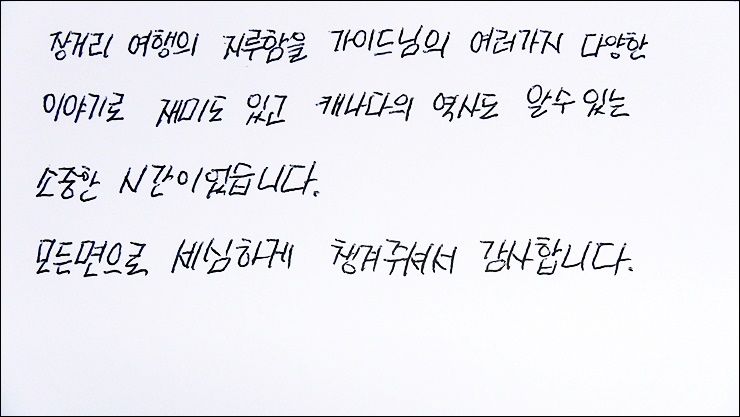 장거리 여행의 지루함을 가이드님의 여러가지 다양한
이야기로 재미도 있고 캐나다의 역사도 알수있는
소중한 시간이었듭니다.
모든면으로 세심하게 챙겨주셔서 감사합니다.